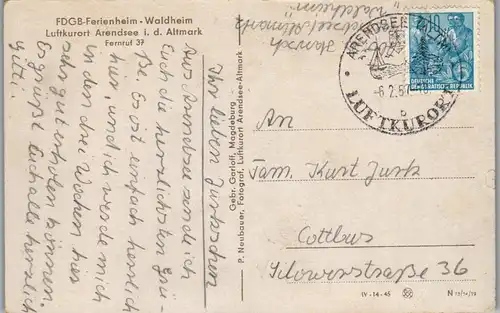 FDGB-Ferienheim-Waldheim
Luftkurort Arendsee i. d. Altmark
Fernruf 37
Ihr lieben Jurkschen
Aus Arendsee sende ich
Euch die herzlichsten Grü-
ße. Es ist einfach herrlich
hier, und ich werde mich
in den drei Wochen hier
sehr gut erholen können.
Es grüßt Euch alle herzlich
Gebr. Garloff, Magdeburg
P. Neubauer, Fotograf, Luftkurort Arendsee-Altmark
ARENDSEE
-6.2.5
b
LUFTKURORT
10
DEUTSCHE
DEMOKRATISCHE REPUBLIK
An
Fam. Kurt Jurk
Cottbus
Silowerstraße 36
IV-14-45